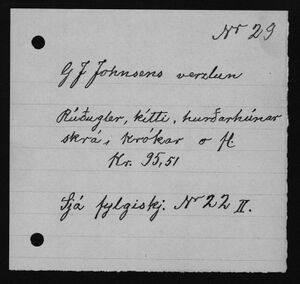 Nr 29
G J Johnsens verzlun
Rúðugler, kítti, hurðarhúnar
skrá, krókar o fl.
Kr. 95,51
Sjá fylgiskj. Nr 22 II.